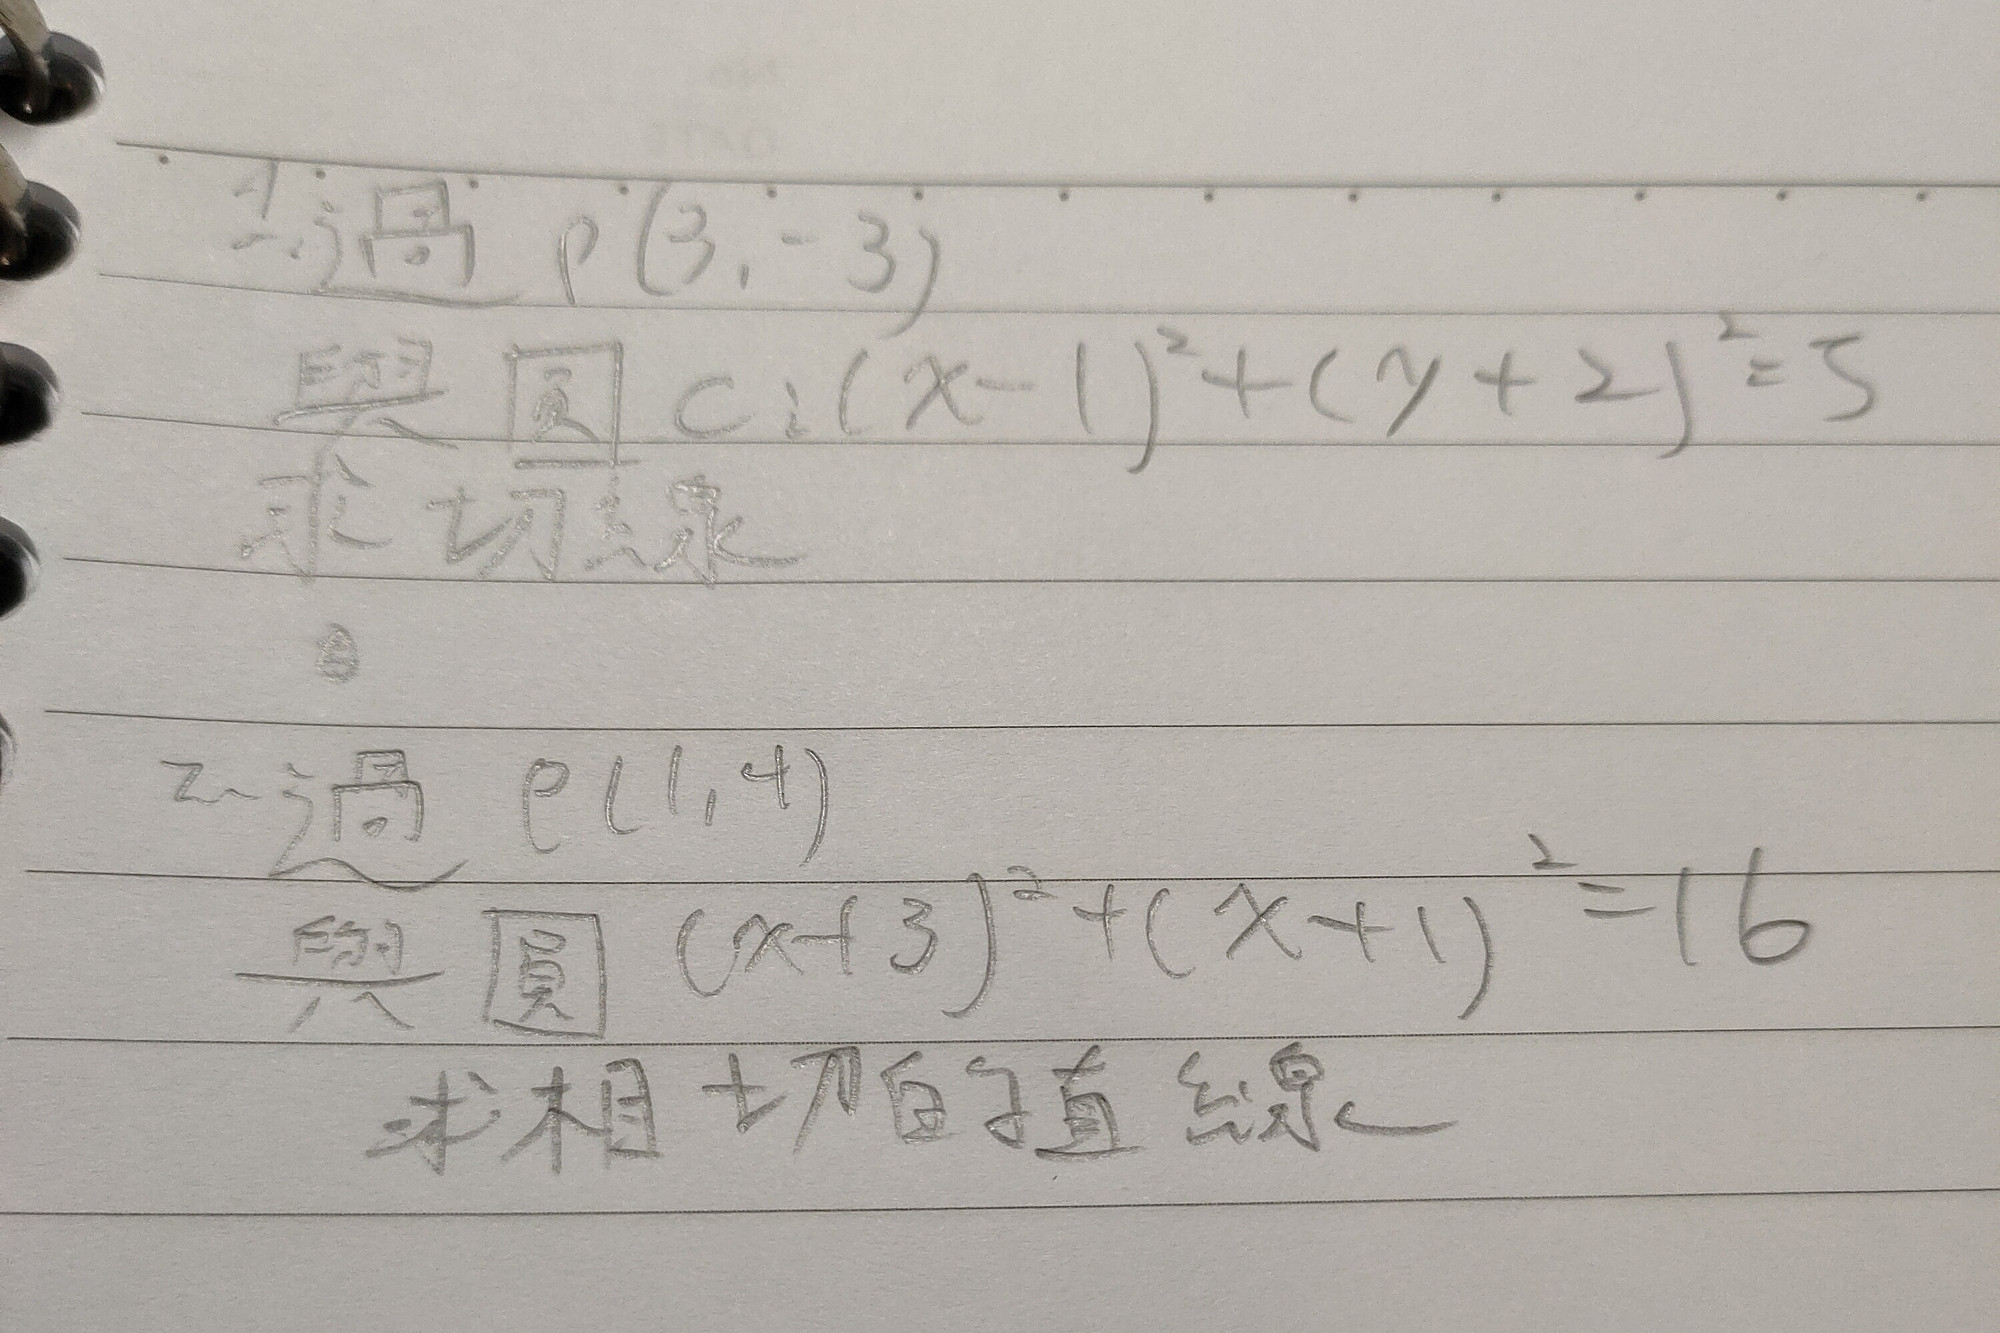 1.過 P(3,-3)
與圓 C:(x-1)²+(y+2)²=5
求切線
2.過 P(1,4)
與圓 (x+3)²+(x+1)²=16
求相切的直線